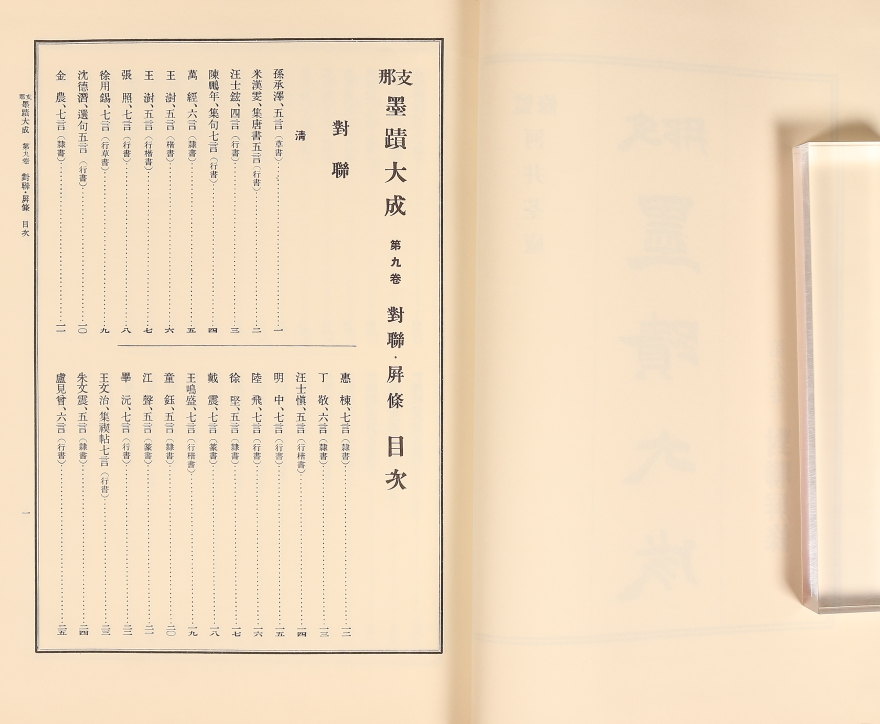 支那墨蹟大成 第九卷 對聯・屏條 目次
對聯
清
孫承澤、五言（草書）……一
米漢雯、集唐書五言（行書）……二
汪士鋐、四言（行書）……三
陳鵬年、集句七言（行書）……四
萬經、六言（隸書）……五
王澍、五言（楷書）……六
王澍、五言（行楷書）……七
張照、七言（行書）……八
徐用錫、七言（行草書）……九
沈德潛、選句五言（行書）……一〇
金農、七言（隸書）……一一
惠棟、七言（隸書）……一二
丁敬、六言（隸書）……一三
汪士愼、五言（行楷書）……一四
明中、七言（行書）……一五
陸飛、七言（行書）……一六
徐堅、五言（隸書）……一七
戴震、七言（篆書）……一八
王鳴盛、七言（行楷書）……一九
童鈺、五言（隸書）……二〇
江聲、五言（篆書）……二一
畢沅、七言（行書）……二二
王文治、集禊帖七言（行書）……二三
朱文震、五言（隸書）……二四
盧見曾、六言（行書）……二五
支那墨蹟大成 第九卷 對聯・屏條 目次
一